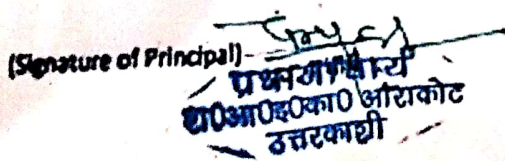 (Signature of Principal)
प्रधानाचार्य
रा0आ0इ0का0 औराकोट
उत्तरकाशी